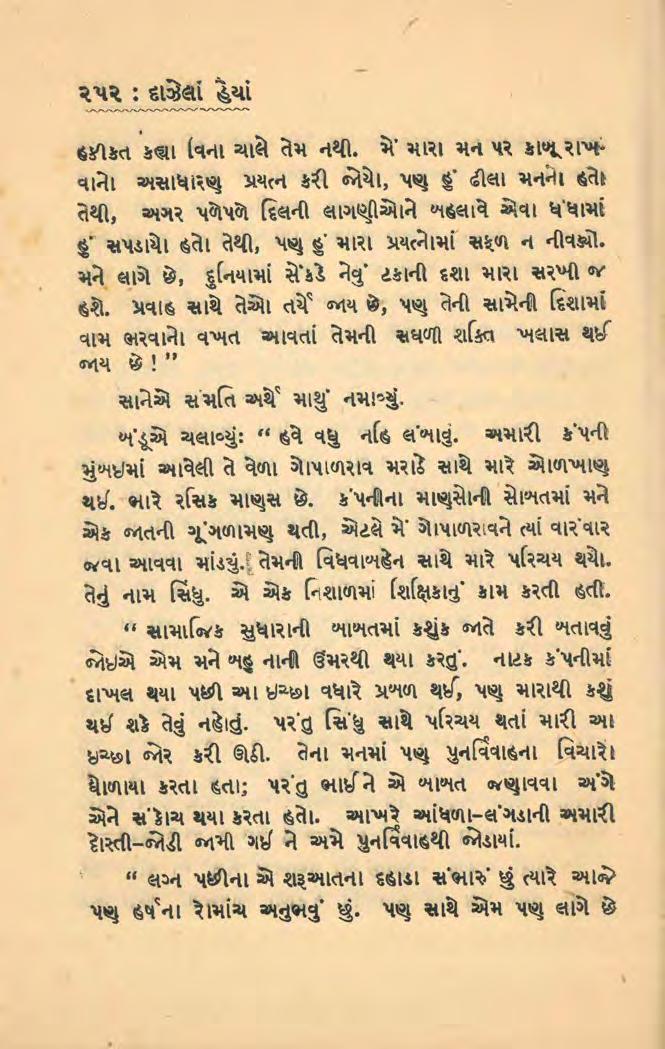 ૨૫૨ : દાઝેલાં હૈયાં
હકીકત કહ્યા વિના ચાલે તેમ નથી. મેં મારા મન પર કાબૂ રાખ-
વાનો અસાધારણ પ્રયત્ન કરી જોયો, પણ હું ઢીલા મનનો હતો
તેથી, અગર પળેપળે દિલની લાગણીઓને બહલાવે એવા ધંધામાં
હું સપડાયો હતો તેથી, પણ હું મારા પ્રયત્નોમાં સફળ ન નીવડ્યો.
મને લાગે છે, દુનિયામાં સેંકડે નેવું ટકાની દશા મારા સરખી જ
હશે. પ્રવાહ સાથે તેઓ તર્યે જાય છે, પણ તેની સામેની દિશામાં
વામ ભરવાનો વખત આવતાં તેમની સઘળી શક્તિ ખલાસ થઈ
જાય છે ! ”
સાનેએ સંમતિ અર્થે માથું નમાવ્યું.
બંડૂએ ચલાવ્યુંઃ “ હવે વધુ નહિ લંબાવું. અમારી કંપની
મુંબઇમાં આવેલી તે વેળા ગોપાળરાવ મરાઠે સાથે મારે ઓળખાણ
થઇ. ભારે રસિક માણસ છે. કંપનીના માણસોની સોબતમાં મને
એક જાતની ગૂંગળામણ થતી, એટલે મેં ગોપાળરાવને ત્યાં વારંવાર
જવા આવવા માંડયું. તેમની વિધવાબહેન સાથે મારે પરિચય થયો.
તેનું નામ સિંધુ. એ એક નિશાળમાં શિક્ષિકાનું કામ કરતી હતી.
“ સામાજિક સુધારાની બાબતમાં કશુંક જાતે કરી બતાવવું
જોઇએ એમ મને બહુ નાની ઉંમરથી થયા કરતું. નાટક કંપનીમાં
દાખલ થયા પછી આ ઇચ્છા વધારે પ્રબળ થઈ, પણ મારાથી કશું
થઈ શકે તેવું નહોતું. પરંતુ સિંધુ સાથે પરિચય થતાં મારી આ
ઇચ્છા જોર કરી ઊઠી. તેના મનમાં પણ પુનર્વિવાહના વિચારો
ઘોળાયા કરતા હતા; પરંતુ ભાઈને એ બાબત જણાવવા અંગે
એને સંકોચ થયા કરતો હતો. આખરે આંધળા–લંગડાની અમારી
દોસ્તી–જોડી જામી ગઈ ને અમે પુનર્વિવાહથી જોડાયાં.
“ લગ્ન પછીના એ શરૂઆતના દહાડા સંભારું છું ત્યારે આજે
પણ હર્ષના રોમાંચ અનુભવું છું. પણ સાથે એમ પણ લાગે છે